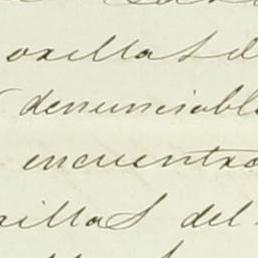 orillas d
denunciabl
encuentra
rillas del